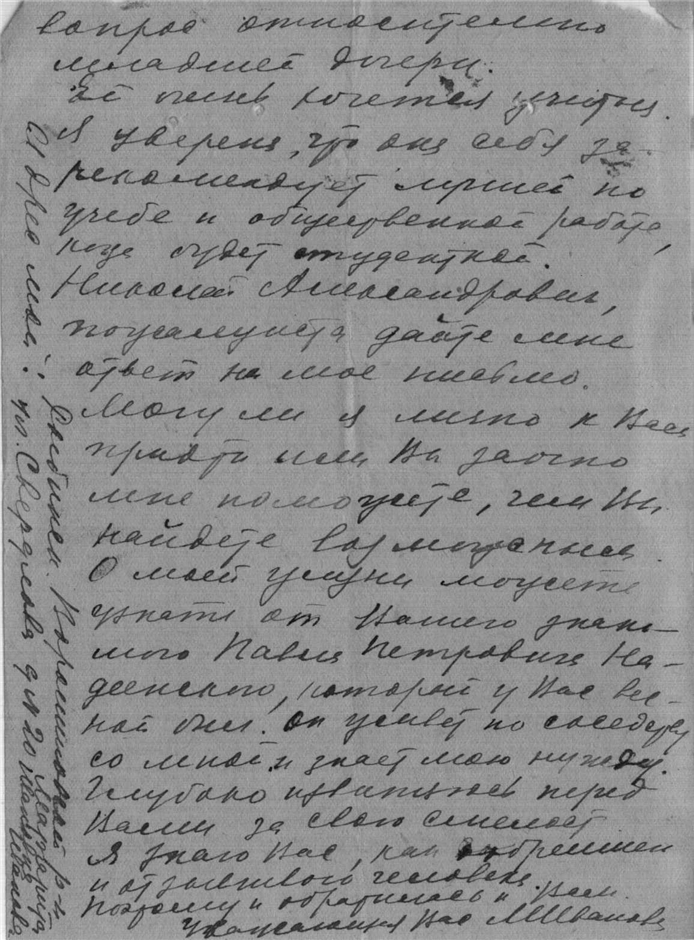 вопрос относительно
младшей дочери.
Ей очень хочется учиться.
Я уверена, что она себя за-
рекомендует лучшей по
учебе и общественной работе,
когда будет студенткой.
Николай Александрович,
пожалуйста дайте мне
ответ на мое письмо.
Могу ли я лично к Вам
придти или Вы заочно
мне поможете, чем Вы
найдете возможным.
О моей жизни можете
узнать от Вашего знако-
мого Павла Петровича На-
деенского, который у Вас вес-
ной был. Он живет по соседству
со мной и знает мою нужду.
Глубоко извиняюсь перед
Вами за свою смелость
Я знаю Вас, как
и отзывчивого человека
поэтому и обратилась к Вам.
Уважающая Вас М Иванова
Адрес мой: Рыбинск. Ворошиловский р-н
ул. Свердлова д № 20
Иванова